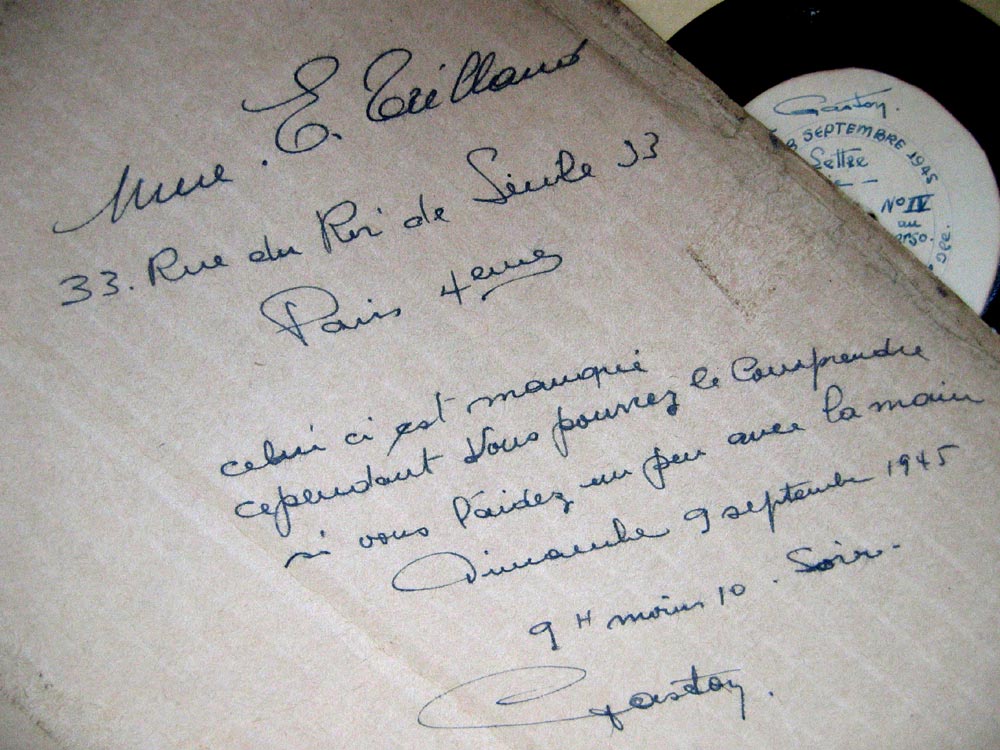 Mme. E. Trilland
33. Rue du Roi de Sicile 33
Paris 4eme
celui ci est manqué
cependant Vous pourrez le Comprendre
si vous l'aidez un peu avec la main
Dimanche 9 septembre 1945
9 H moins 10. Soir.
Gaston.
Gaston.
SEPTEMBRE 1945
No IV
au